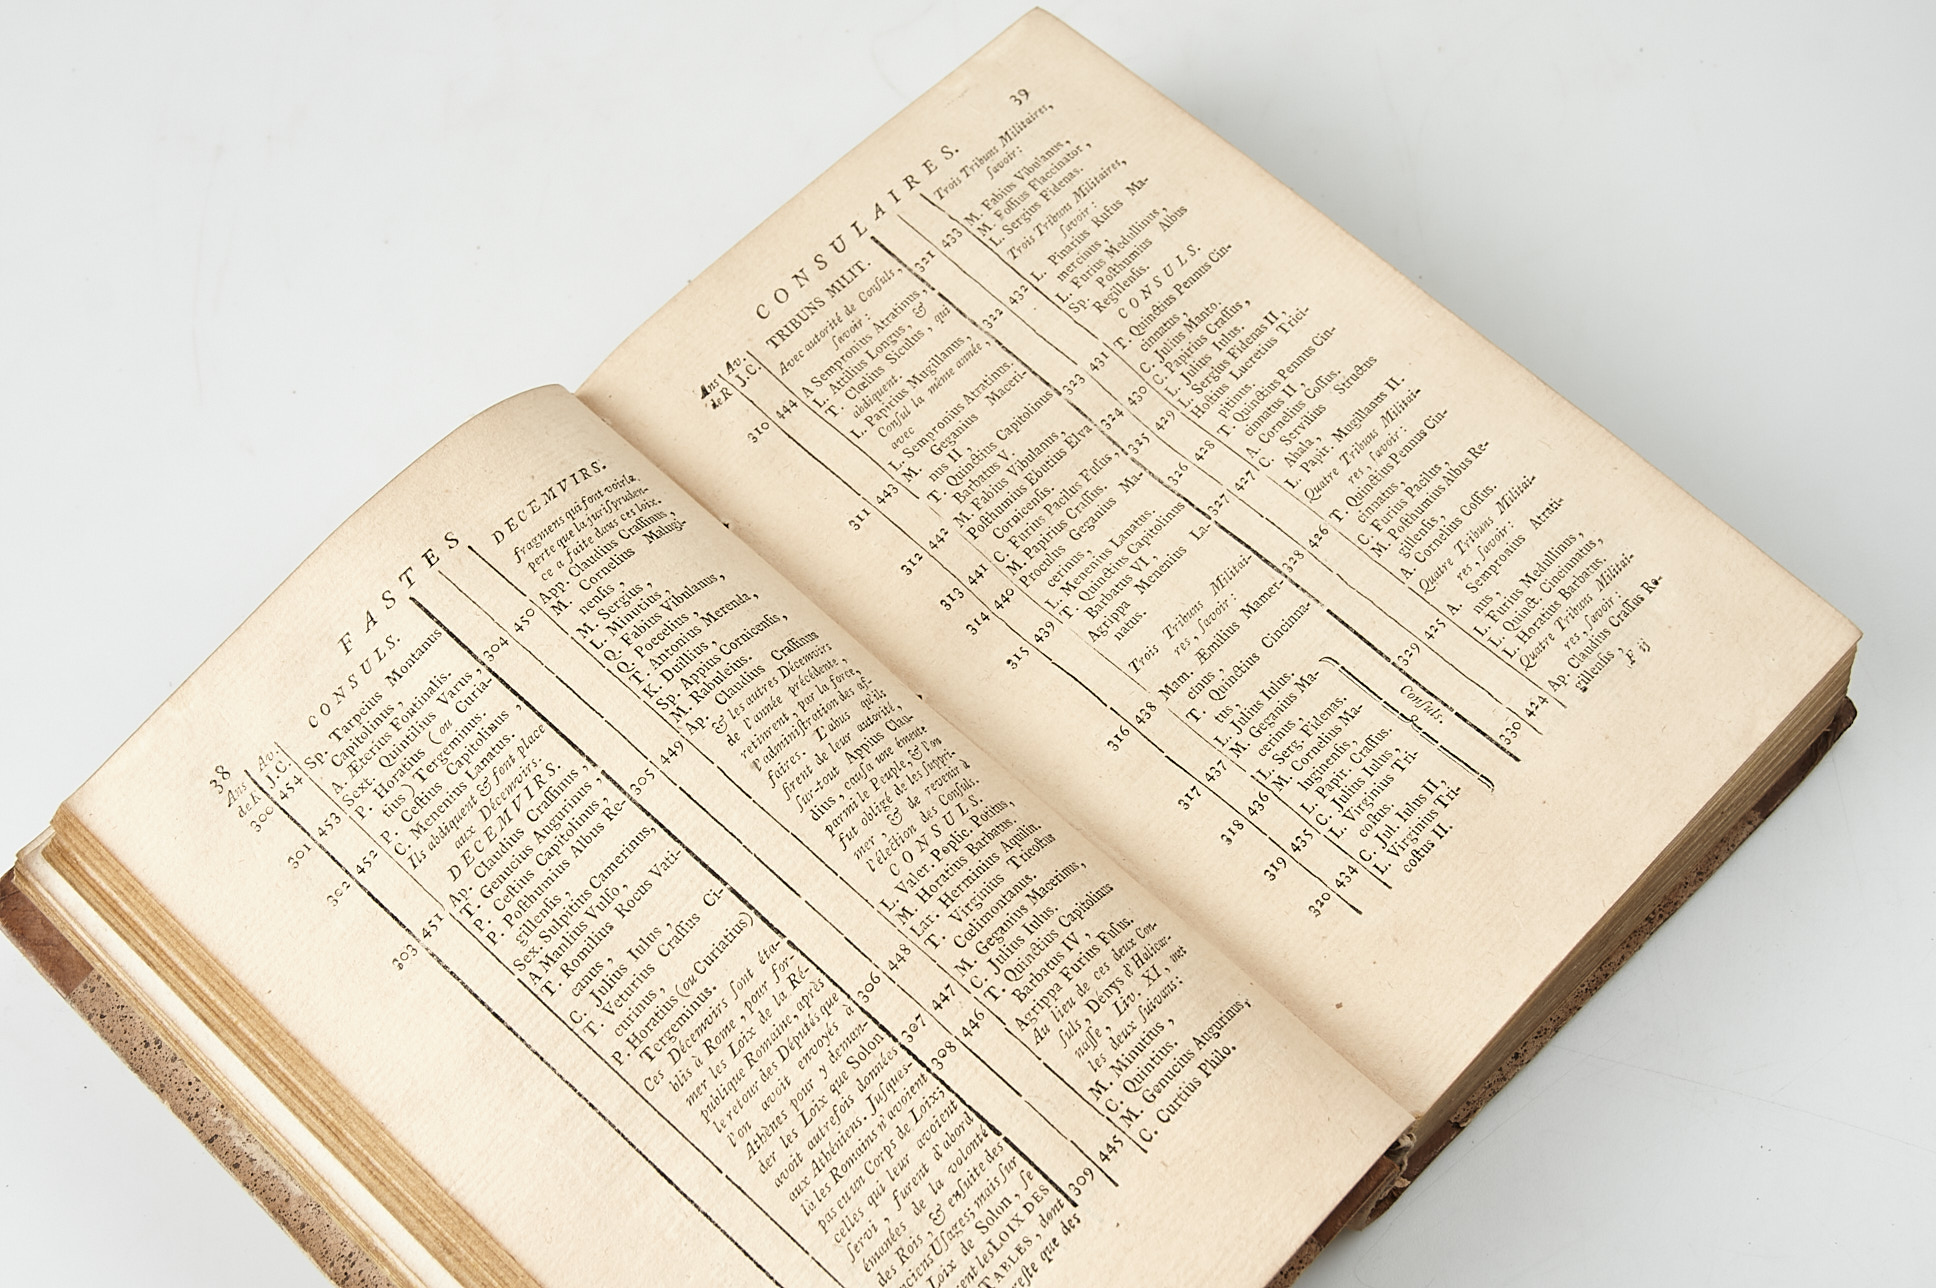 38
FASTES
Ans de R
Av. J.C.
CONSULS.
300 454 Sp. Tarpeius Montanus
Capitolinus,
A. Æterius Fontinalis.
301 453 Sext. Quintilius Varus,
P. Horatius (ou Curia-
tius) Tergeminus.
302 452 P. Ceſtius Capitolinus,
C. Menenius Lanatus.
Ils abdiquent & font place
aux Décemvirs.
DECEMVIRS.
303 451 Ap. Claudius Craſſinus,
T. Genucius Augurinus,
P. Ceſtius Capitolinus,
P. Poſthumius Albus Re-
gillenſis,
Sex. Sulpitius Camerinus,
A Manlius Vulſo,
T. Romilius Rocus Vati-
canus,
C. Julius Iulus,
T. Veturius Craſſus Ci-
curinus,
P. Horatius (ou Curiatius)
Tergeminus.
Ces Décemvirs ſont éta-
blis à Rome, pour for-
mer les Loix de la Ré-
publique Romaine, après
le retour des Députés que
l'on avoit envoyés à
Athènes pour y deman-
der les Loix que Solon
avoit autrefois données
aux Athéniens. Juſques-
là les Romains n'avoient
pas eu un Corps de Loix;
celles qui leur avoient
ſervi, furent d'abord
émanées de la volonté
des Rois, & enſuite des
anciens Uſages; mais ſur
Loix de Solon, ſe
LOIX DES
TABLES, dont
reſte que des
DECEMVIRS.
fragmens qui font voir la
perte que la juriſpruden-
ce a faite dans ces loix.
304 450 App. Claudius Craſſinus,
M. Cornelius Malugi-
nenſis,
M. Sergius,
L. Minutius,
Q. Fabius Vibulanus,
Q. Poecelius,
T. Antonius Merenda,
K. Duillius,
Sp. Appius Cornicenſis,
M. Rabuleius.
305 449 Ap. Claudius Craſſinus
& les autres Décemvirs
de l'année précédente,
retinrent, par la force,
l'adminiſtration des af-
faires. L'abus qu'ils
firent de leur autorité,
ſur-tout Appius Clau-
dius, cauſa une émeute
parmi le Peuple, & l'on
fut obligé de les ſuppri-
mer, & de revenir à
l'élection des Conſuls.
CONSULS.
L. Valer. Poplic. Potitus,
M. Horatius Barbatus.
306 448 Lar. Herminius Aquilin.
T. Virginius Tricoſtus
Cœlimontanus.
307 447 M. Geganius Macerinus,
C. Julius Iulus.
308 446 T. Quinctius Capitolinus
Barbatus IV,
Agrippa Furius Fuſus.
Au lieu de ces deux Con-
ſuls, Denys d'Halicar-
naſſe, Liv. XI, met
les deux ſuivans:
M. Minutius,
C. Quintius.
309 445 M. Genucius Augurinus,
C. Curtius Philo.
39
CONSULAIRES.
Ans de R
Av. J.C.
TRIBUNS MILIT.
Avec autorité de Conſuls,
ſavoir:
310 444 A Sempronius Atratinus,
L. Attilius Longus, &
T. Clœlius Siculus, qui
abdiquent.
L. Papirius Mugillanus,
Conſul la même année,
avec
L. Sempronius Atratinus.
311 443 M. Geganius Maceri-
nus II,
T. Quinctius Capitolinus
Barbatus V.
312 442 M. Fabius Vibulanus,
Poſthumius Ebutius Elva
Cornicenſis.
313 441 C. Furius Pacilus Fuſus,
M. Papirius Craſſus.
314 440 Proculus Geganius Ma-
cerinus,
L. Menenius Lanatus.
315 439 T. Quinctius Capitolinus
Barbatus VI,
Agrippa Menenius La-
natus.
Trois Tribuns Militai-
res, ſavoir:
316 438 Mam. Æmilius Mamer-
cinus,
T. Quinctius Cincinna-
tus,
L. Julius Iulus.
317 437 M. Geganius Ma-
cerinus,
L. Serg. Fidenas.
318 436 M. Cornelius Ma-
luginenſis,
L. Papir. Craſſus.
319 435 C. Julius Iulus,
L. Virginius Tri-
coſtus.
320 434 C. Jul. Iulus II,
L. Virginius Tri-
coſtus II.
Conſuls.
Trois Tribuns Militaires,
ſavoir:
321 433 M. Fabius Vibulanus,
M. Foſſius Flaccinator,
L. Sergius Fidenas.
Trois Tribuns Militaires,
ſavoir:
322 432 L. Pinarius Rufus Ma-
mercinus,
L. Furius Medullinus,
Sp. Poſthumius Albus
Regillenſis.
CONSULS.
323 431 T. Quinctius Pennus Cin-
cinnatus,
C. Julius Manto.
324 430 C. Papirius Craſſus,
L. Julius Iulus.
325 429 L. Sergius Fidenas II,
Hoſtius Lucretius Trici-
pitinus.
326 428 T. Quinctius Pennus Cin-
cinnatus II,
A. Cornelius Coſſus.
327 427 C. Servilius Structus
Ahala,
L. Papir. Mugillanus II.
Quatre Tribuns Militai-
res, ſavoir:
328 426 T. Quinctius Pennus Cin-
cinnatus,
C. Furius Pacilus,
M. Poſthumius Albus Re-
gillenſis,
A. Cornelius Coſſus.
Quatre Tribuns Militai-
res, ſavoir:
329 425 A. Sempronius Atrati-
nus,
L. Furius Medullinus,
L. Quinct. Cincinnatus,
L. Horatius Barbatus.
Quatre Tribuns Militai-
res, ſavoir:
330 424 Ap. Claudius Craſſus Re-
gillenſis,
F ij